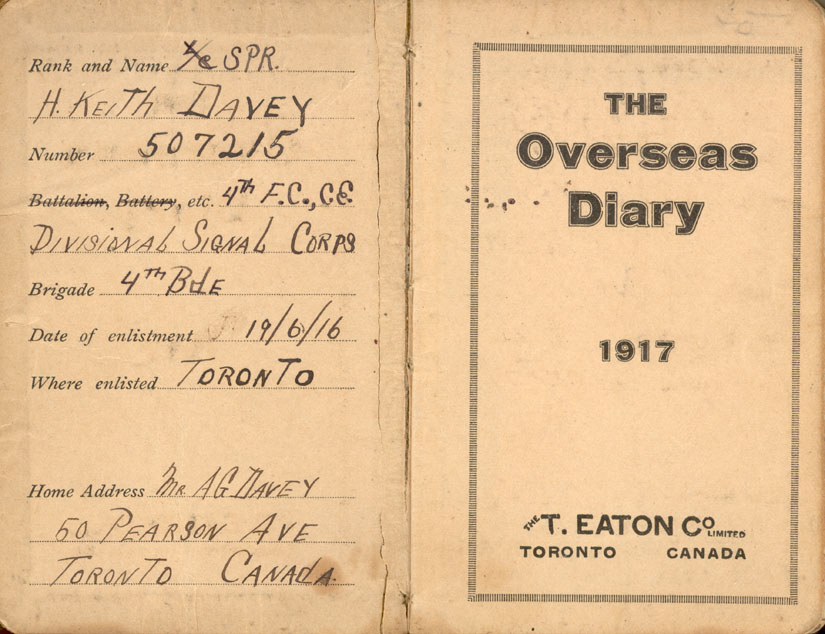 Rank and Name SPR.
H. KEITH DAVEY
Number 507215
Battalion, Battery, etc. 4TH F.C., C.E.
DIVISIONAL SIGNAL CORPS
Brigade 4TH BdE
Date of enlistment 19/6/16
Where enlisted TORONTO
Home Address MR AG DAVEY
50 PEARSON AVE
TORONTO CANADA.
THE
Overseas
Diary
1917
THE T. EATON CO LIMITED
TORONTO CANADA